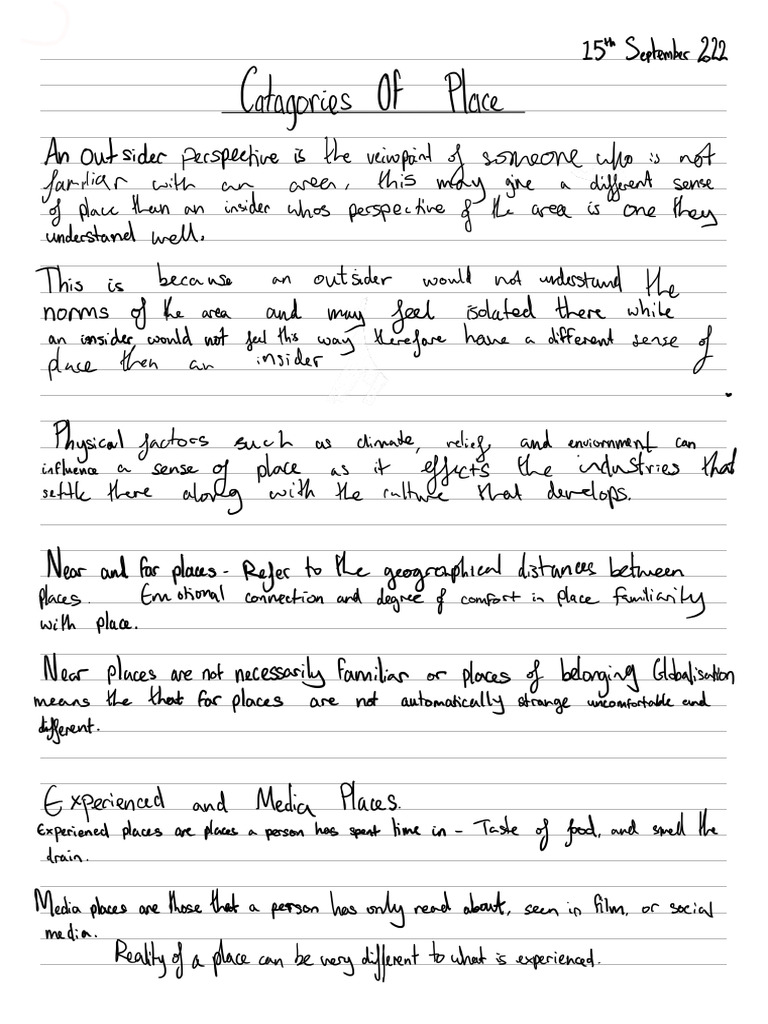 15th September 222
Catagories Of Place
An outsider perspective is the veiwpoint of someone who is not
familiar with an area, this may give a different sense
of place then an insider whos perspective of the area is one they
understand well.
This is because an outsider would not understand the
norms of the area and may feel isolated there while
an insider would not feel this way therefore have a different sense of
place then an insider
Physical factors such as climate, relief and enviornment can
influence a sense of place as it effects the industries that
settle there along with the culture that develops.
Near and far places - Refer to the geographical distances between
places. Emotional connection and degree of comfort in place familiarity
with place.
Near places are not necessarily familiar or places of belonging Globalisation
means the that far places are not automatically strange uncomfortable and
different.
Experienced and Media Places.
Experiened places are places a person has spent time in - Taste of food, and smell the
drain.
Media places are those that a person has only read about, seen in film, or social
media.
Reality of a place can be very different to what is experienced.